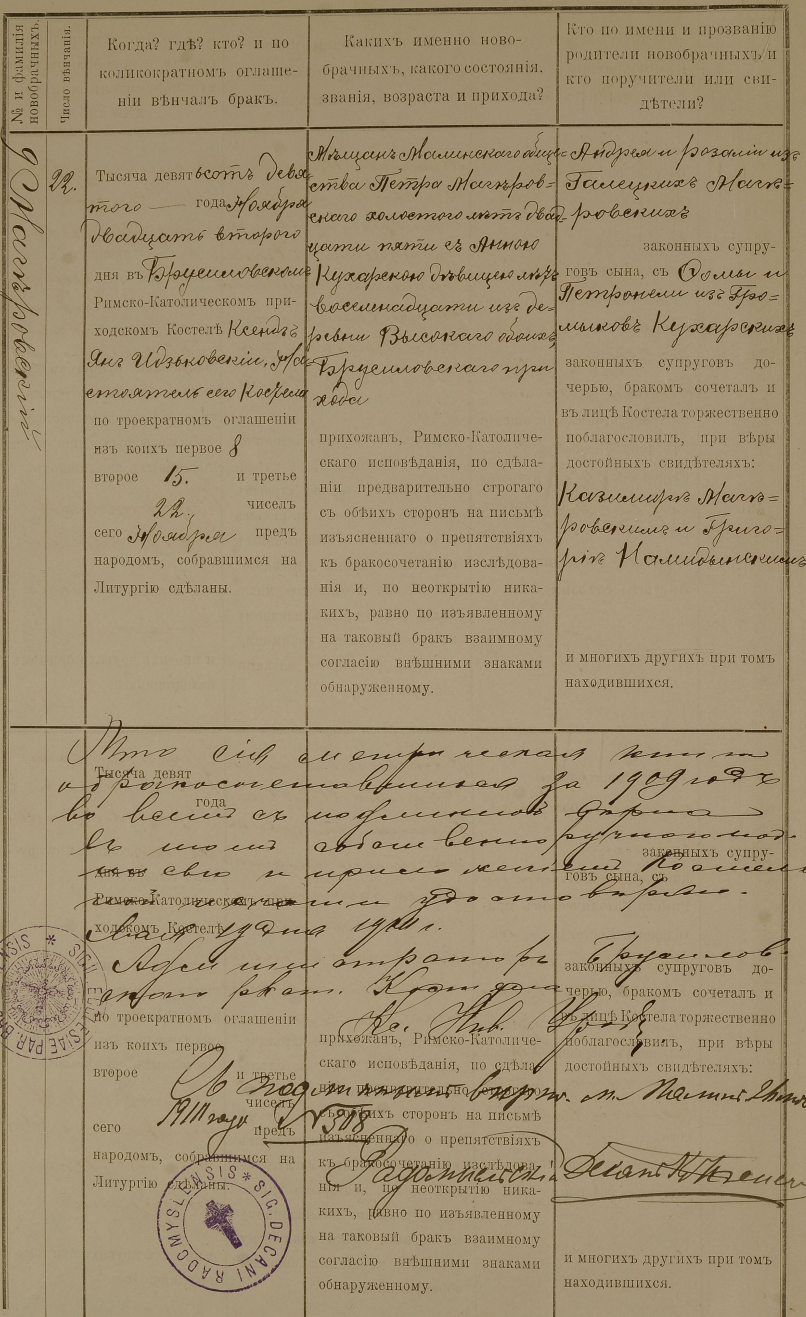 № и фамилія новобрачныхъ.
Число вѣнчанія.
Когда? гдѣ? кто? и по
коликократномъ оглаше-
ніи вѣнчалъ бракъ.
Какихъ именно ново-
брачныхъ, какого состоянія,
званія, возраста и прихода?
Кто по имени и прозванію
родители новобрачныхъ и
кто поручители или сви-
дѣтели?
9
22.
Тысяча девятьсотъ девя-
того — года Ноября
двадцать второго
дня въ Брусиловскомъ
Римско-Католическомъ при-
ходскомъ Костелѣ Ксендзъ
Янъ Идзьковскій, На-
стоятель сего Костела
по троекратномъ оглашеніи
изъ коихъ первое 8
второе 15. и третье
22. чиселъ
сего Ноября предъ
народомъ, собравшимся на
Литургію сдѣланы.
Мѣщанъ Малинскаго обще-
ства Петра Магѣров-
скаго холостого лѣтъ двад-
цати пяти съ Анною
Кухарскою дѣвицею лѣтъ
восемнадцати изъ де-
ревни Высокаго обоихъ
Брусиловскаго при
хода
прихожанъ, Римско-Католиче-
скаго исповѣданія, по сдѣла-
ніи предварительно строгаго
съ обѣихъ сторонъ на письмѣ
изъясненнаго о препятствіяхъ
къ бракосочетанію изслѣдова-
нія и, по неоткрытію ника-
кихъ, равно по изъявленному
на таковый бракъ взаимному
согласію внѣшними знаками
обнаруженному.
Андрея и Розаліи изъ
Галецкихъ Магѣ-
ровскихъ
законныхъ супру-
говъ сына, съ Ѳомы и
Петронели изъ Гро-
мыковъ Кухарскихъ
законныхъ супруговъ до-
черью, бракомъ сочеталъ и
въ лицѣ Костела торжественно
поблагословилъ, при вѣры
достойныхъ свидѣтеляхъ:
Казимирѣ Магѣ-
ровскимъ и Григо-
ріѣ
и многихъ другихъ при томъ
находившихся.
Что сія метрическая
о бракосочетавшихся за 1909 годъ
во всемъ съ подлинной
въ томъ собственноручною под-
и приложеніемъ
удостовѣряю.
Мая 19 дня 1911 г.
Администраторъ Брусилов-
скаго
Кс.
Съ подлиннымъ вѣрно. м. Малинъ
1911 года. № 508
Радомысльскій Деканъ
Тысяча девят
года
дня въ
Римско-Католическомъ при-
ходскомъ Костелѣ
по троекратномъ оглашеніи
изъ коихъ первое
второе и третье
чиселъ
сего предъ
народомъ, собравшимся на
Литургію сдѣланы.
прихожанъ, Римско-Католиче-
скаго исповѣданія, по сдѣла-
ніи предварительно строгаго
съ обѣихъ сторонъ на письмѣ
изъясненнаго о препятствіяхъ
къ бракосочетанію изслѣдова-
нія и, по неоткрытію ника-
кихъ, равно по изъявленному
на таковый бракъ взаимному
согласію внѣшними знаками
обнаруженному.
законныхъ супру-
говъ сына, съ
законныхъ супруговъ до-
черью, бракомъ сочеталъ и
въ лицѣ Костела торжественно
поблагословилъ, при вѣры
достойныхъ свидѣтеляхъ:
и многихъ другихъ при томъ
находившихся.
SIG. DECANI RADOMYSLENSIS